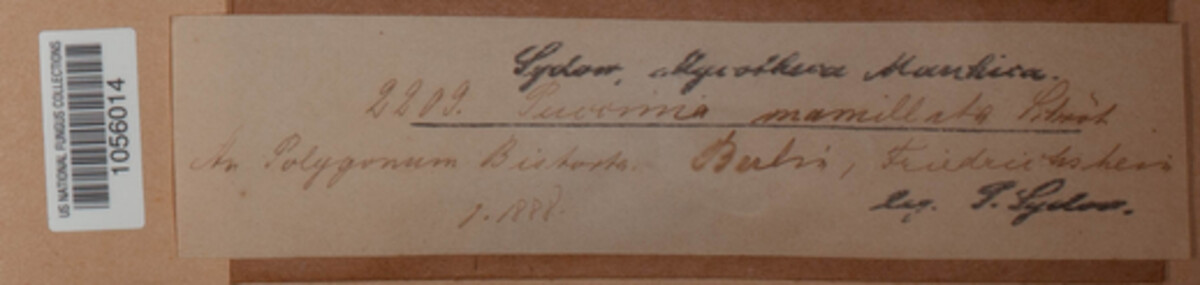 US NATIONAL FUNGUS COLLECTIONS
1056014
Sydow, Mycotheca Marchica.
2209. Puccinia mamillata Schröt
An Polygonum Bistorta. Berlin, Friedrichshein
7. 1888.
leg. P. Sydow.